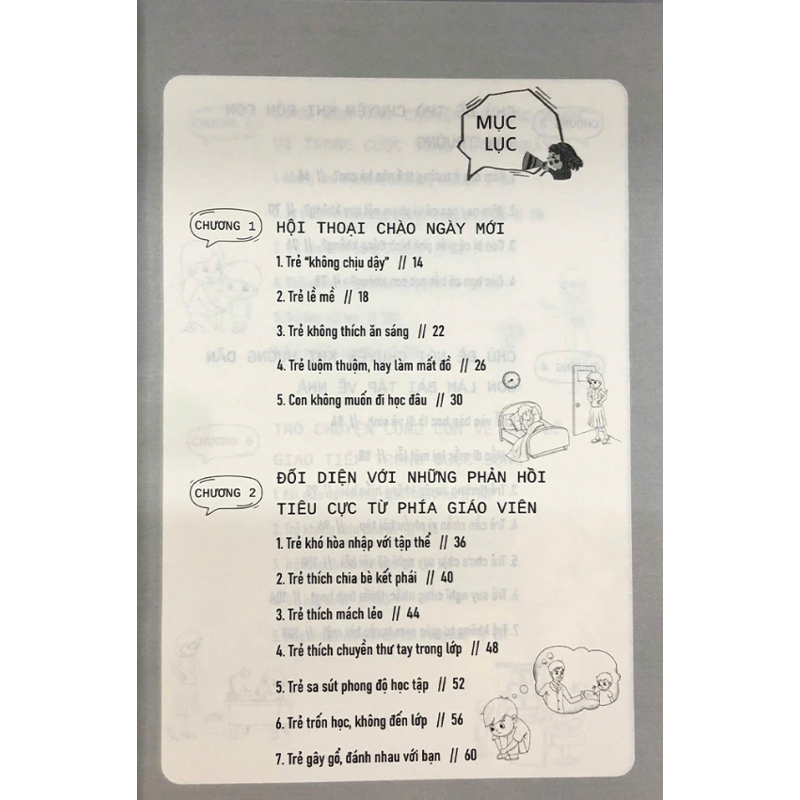 MỤC
LỤC
CHƯƠNG 1
HỘI THOẠI CHÀO NGÀY MỚI
1. Trẻ “không chịu dậy” // 14
2. Trẻ lề mề // 18
3. Trẻ không thích ăn sáng // 22
4. Trẻ luộm thuộm, hay làm mất đồ // 26
5. Con không muốn đi học đâu // 30
CHƯƠNG 2
ĐỐI DIỆN VỚI NHỮNG PHẢN HỒI
TIÊU CỰC TỪ PHÍA GIÁO VIÊN
1. Trẻ khó hòa nhập với tập thể // 36
2. Trẻ thích chia bè kết phái // 40
3. Trẻ thích mách lẻo // 44
4. Trẻ thích chuyền thư tay trong lớp // 48
5. Trẻ sa sút phong độ học tập // 52
6. Trẻ trốn học, không đến lớp // 56
7. Trẻ gây gổ, đánh nhau với bạn // 60